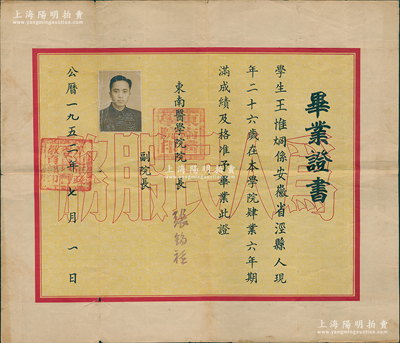 上海陽明拍賣
www.yangmingauction.com
畢業證書
學生王惟炯係安徽省涇縣人現
年二十六歲在本學院肄業六年期
滿成績及格准予畢業此證
東南醫學院院長
副院長
張錫祺
公曆一九五二年七月一日
為人民服務
上海陽明拍賣
www.yangmingauction.com